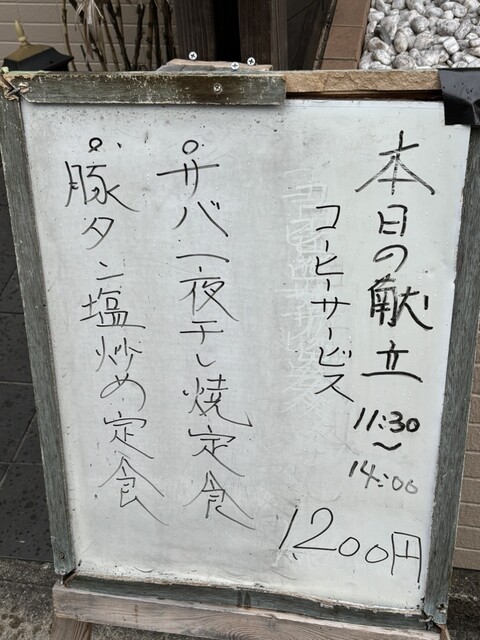 本日の献立
11:30
〜
14:00
コーヒーサービス
1200円
サバ一夜干し焼定食
豚タン塩炒め定食